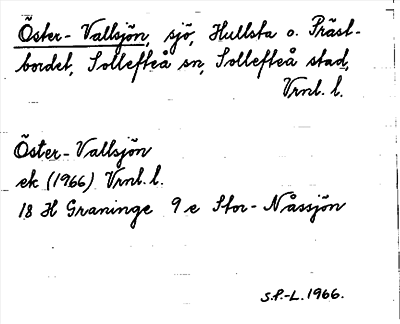 Öster-Vallsjön, sjö, Hullsta o. Präst-
bordet, Sollefteå sn, Sollefteå stad,
Vrnl. l.
Öster-Vallsjön
ek (1966) Vrnl. l.
18 H Graninge 9 e Stor-Nåssjön
S.P.-L. 1966.